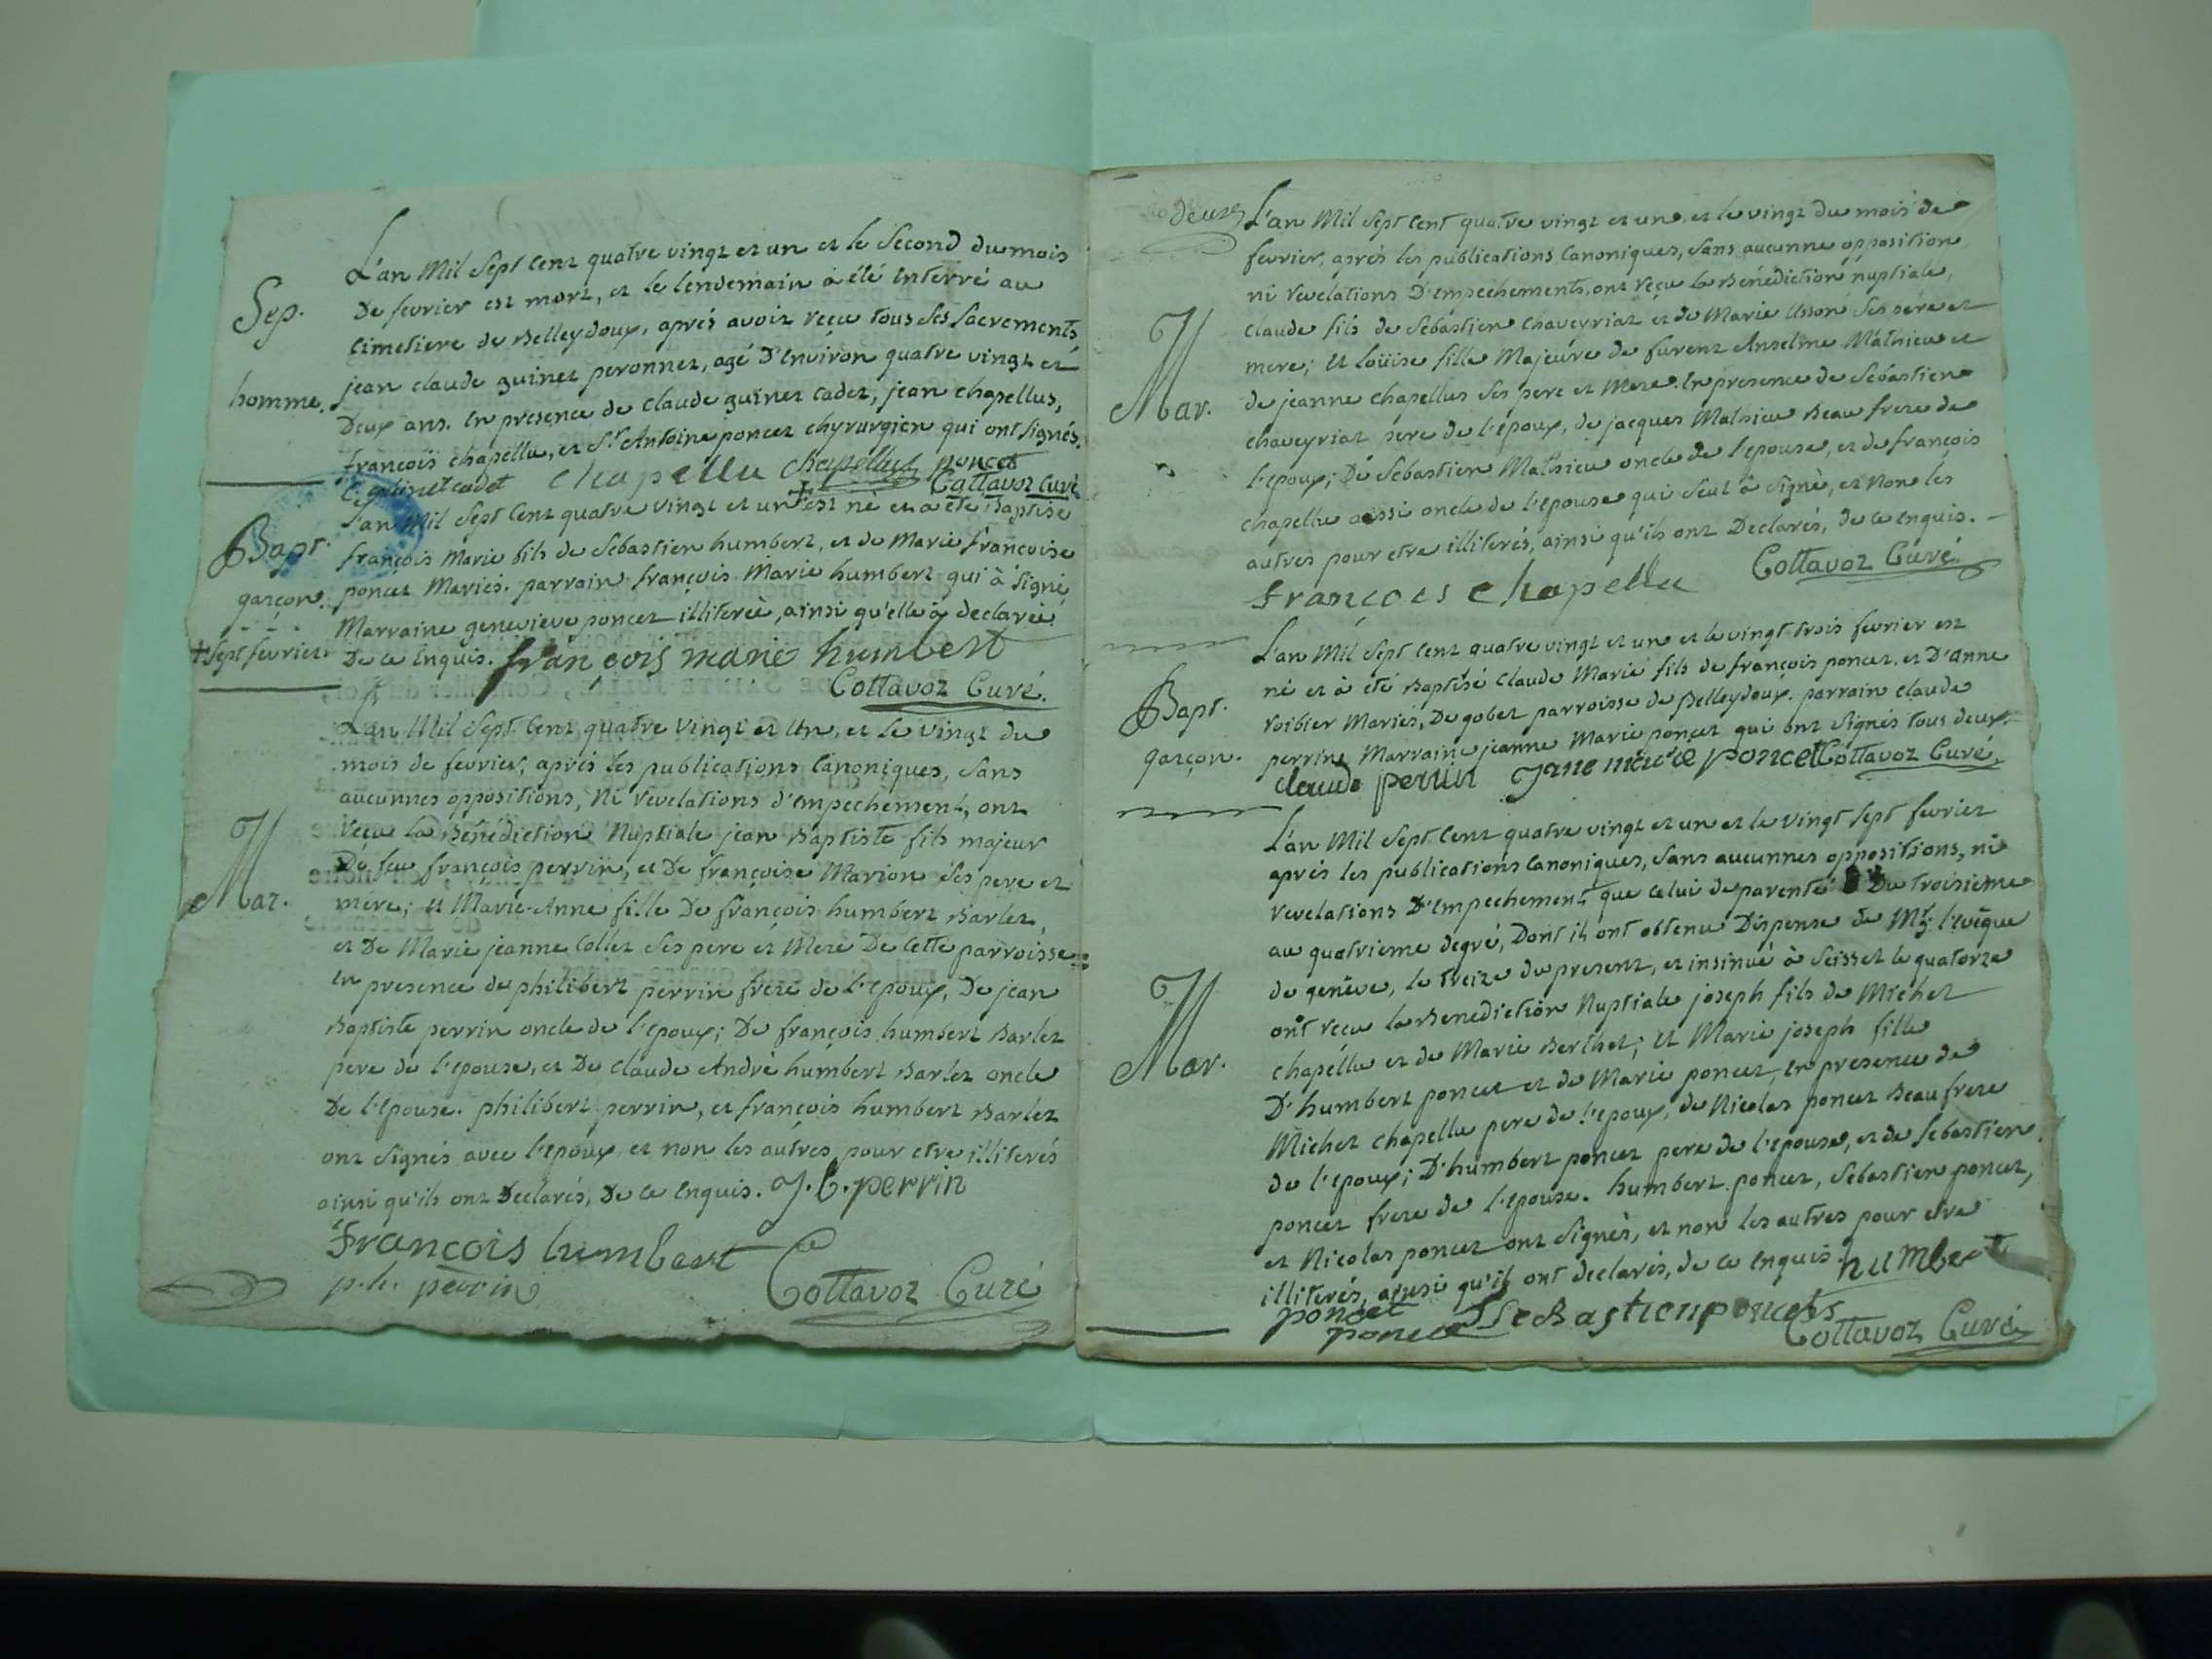 L'an Mil Sept Cent quatre vingt et un et le Second du mois
Sep.
De fevrier est mort, et le lendemain à été Enterré au
Cimetiere de Belleydoux, aprés avoir reçu tous ses Sacrements
homme.
jean claude guinet peronnet, agé D'Environ quatre vingt et
Deux ans. En presence de Claude guinet Cadet, jean chapellus,
françois chapellu, et Sr. Antoine poncet chyrurgien qui ont signés.
C. guinet cadet chapellu chapellus poncet
Cottavoz Curé
Bapt.
garçon.
+ Sept fevrier
L'an Mil Sept Cent quatre vingt et un + est né et a été Baptisé
françois Marie fils de Sebastien humbert, et de Marie françoise
poncet Mariés. parrain françois Marie humbert qui à signé,
Marraine genevieve poncet illiterée, ainsi qu'elle a declarée
De ce Enquis. françois marie humbert
Cottavoz Curé.
L'an Mil Sept Cent quatre vingt et Un, et le vingt du
mois de fevrier, aprés les publications Canoniques, sans
aucunnes oppositions, Ni revelations d'empechement, ont
reçu la Bénédiction Nuptiale jean Baptiste fils majeur
Mar.
De feu françois perrin, et De françoise Marion ses pere et
mere; et Marie-Anne fille De françois humbert Barlet,
et De Marie jeanne Collet ses pere et Mere De Cette parroisse
En presence de philibert perrin frere de l'epoux, De jean
Baptiste perrin oncle de l'epoux; De françois humbert Barlet
pere de l'epouse, et De claude André humbert Barlet oncle
De l'Epouse. philibert perrin, et françois humbert Barlet
ont signés avec l'epoux, et non les autres pour etre illiterés
ainsi qu'ils ont Declarés, De ce Enquis. J. b. perrin
françois humbert
p.h. perrin
Cottavoz Curé
deux
L'an Mil Sept Cent quatre vingt et un et le vingt du mois de
fevrier, aprés les publications Canoniques, sans aucunne opposition
ni revelations D'empechements, ont reçu la Bénédiction nuptiale,
Mar.
claude fils de Sebastien chaveyriat et de Marie Usson ses pere et
mere; et Loüise fille Majeure de furent Anselme Mathieu et
de jeanne chapellus ses pere et Mere. En presence de Sebastien
chaveyriat pere de l'epoux, de jacques Mathieu Beau frere de
l'epoux; De Sebastien Mathieu oncle de l'epouse, et de françois
chapellu aussi oncle de l'epouse qui seul à signé, et Non les
autres pour etre illiterés, ainsi qu'ils ont Declarés, de ce enquis.
françois chapellu
Cottavoz Curé
Bapt.
garçon.
L'an Mil Sept Cent quatre vingt et un et le vingt-trois fevrier est
né et à été Baptisé Claude Marie fils de françois poncet, et D'anne
roibier Mariés, De gobet parroisse de Belleydoux. parrain claude
perrin, Marraine jeanne Marie poncet qui ont signés tous deux.
claude perrin Jane marie poncet Cottavoz Curé,
L'an Mil Sept Cent quatre vingt et un et le vingt sept fevrier
aprés les publications Canoniques, sans aucunnes oppositions, ni
revelations D'empechement que celui de parenté Du troisieme
au quatrieme degré, Dont ils ont obtenu Dispense de Mgr. l'evêque
de genêve, le treize du present, et insinué à Seissel le quatorze
Mar.
ont reçu la Benediction Nuptiale joseph fils de Michel
chapellu et de Marie Berthet; et Marie joseph fille
D'humbert poncet et de Marie poncet, En presence de
Michel chapellu pere de l'epoux, de Nicolas poncet Beau frere
de l'epoux; D'humbert poncet pere de l'epouse, et de Sebastien
poncet frere de l'epouse. humbert poncet, Sebastien poncet,
et Nicolas poncet ont signés, et non les autres pour etre
illiterés, ainsi qu'ils ont declarés, de ce enquis. humbert
poncet Sebastien poncets
poncet
Cottavoz Curé